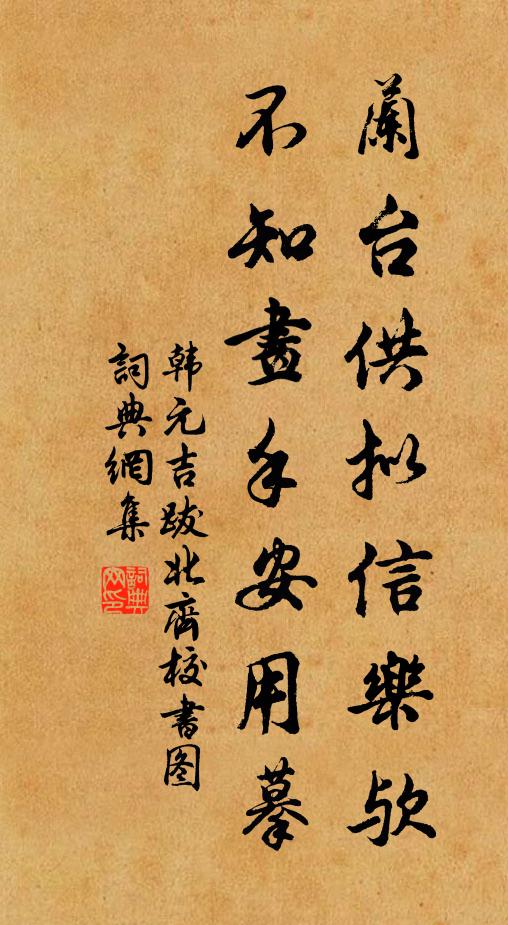 蘭台供拟信樂欤
不知畫手安用摹
韩元吉跋北齊校書图
詞典網集
詞典网印